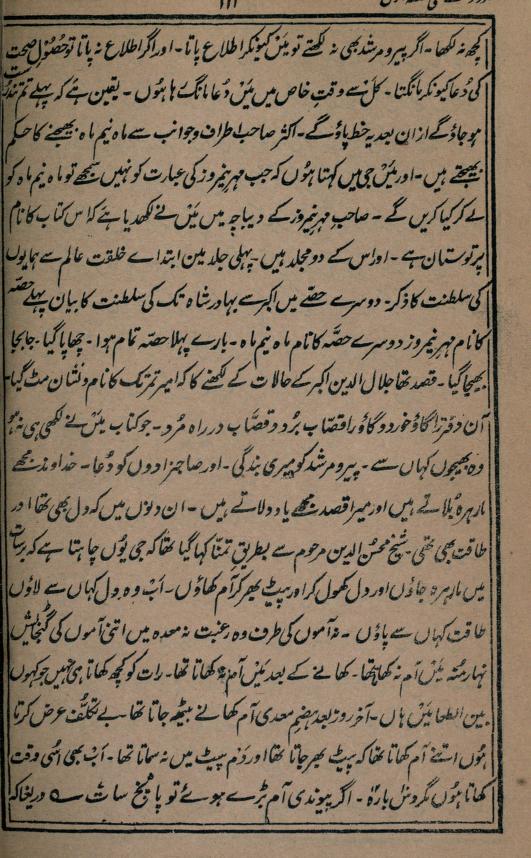 کچھ نہ لکھا۔ اگر پیر و مرشد بھی نہ لکھتے تو میں کیونکر اطلاع پاتا۔ اور اگر اطلاع نہ پاتا تو حصول صحت
کی دعا کیونکر مانگتا۔ کل سے وقت خاص میں میں دعا مانگ رہا ہوں۔ یقین ہے کہ پہلے تم تندرست
ہو جاؤ گے ازان بعد یہ خط پاؤ گے۔ اکثر صاحب اطراف و جوانب سے ماہ نیم ماہ بھیجنے کا حکم
بھیجتے ہیں۔ اور میں جی میں کہتا ہوں کہ جب مہر نیمروز کی عبارت کو نہیں سمجھے تو ماہ نیم ماہ کو
لے کر کیا کریں گے۔ صاحب مہر نیمروز کے دیباچہ میں میں نے لکھدیا ہے کہ اس کتاب کا نام
پرتوستان ہے۔ اور اس کے دو مجلد ہیں۔ پہلی جلد میں ابتداے خلقت عالم سے ہمایوں
کی سلطنت کا ذکر۔ دوسرے حصے میں اکبر سے بہادر شاہ تک کی سلطنت کا بیان پہلے حصّہ
کا نام مہر نیمروز دوسرے حصّہ کا نام ماہ نیم ماہ۔ بارے پہلا حصّہ تمام ہوا۔ چھاپا گیا۔ جابجا
بھیجا گیا۔ قصد تھا جلال الدین اکبر کے حالات کے لکھنے کا کہ امیر تمر تک کا نام و نشان مٹ گیا۔
آن دفتر را گاؤ خورد و گاؤ را قصّاب برد و قصّاب در راہ مرد۔ جو کتاب میں نے لکھی ہی نہ ہو
وہ بھیجوں کہاں سے۔ پیر و مرشد کو میری بندگی۔ اور صاحبزادوں کو دعا۔ خداوند مجھے
مارہرہ بلاتے ہیں اور میرا قصد مجھے یاد دلاتے ہیں۔ ان دنوں میں کہ دل بھی تھا اور
طاقت بھی تھی۔ شیخ محسن الدین مرحوم سے بطریق تمنا کہا گیا تھا کہ جی یوں چاہتا ہے کہ برسات
میں مارہرہ جاؤں اور دل کھول کر اور پیٹ بھر کر آم کھاؤں۔ اب وہ دل کہاں سے لاؤں
طاقت کہاں سے پاؤں۔ نہ آموں کی طرف وہ رغبت نہ معدہ میں اتنی آموں کی گنجایش
نہار منہ میں آم نہ کھاتا تھا۔ کھانے کے بعد میں آم نہ کھاتا تھا۔ رات کو کچھ کھاتا ہی نہیں جو کہوں
بین الطعامین ہاں۔ آخر روز بعد ہضم معدی آم کھانے بیٹھ جاتا تھا۔ بے تکلّف عرض کرتا
ہوں اتنے آم کھاتا تھا کہ پیٹ بھر جاتا تھا اور دم پیٹ میں نہ سماتا تھا۔ اب بھی اسی وقت
کھاتا ہوں مگر دس بارہ۔ اگر پیوندی آم بڑے ہوئے تو پانچ سات ؎ دریغا کہ